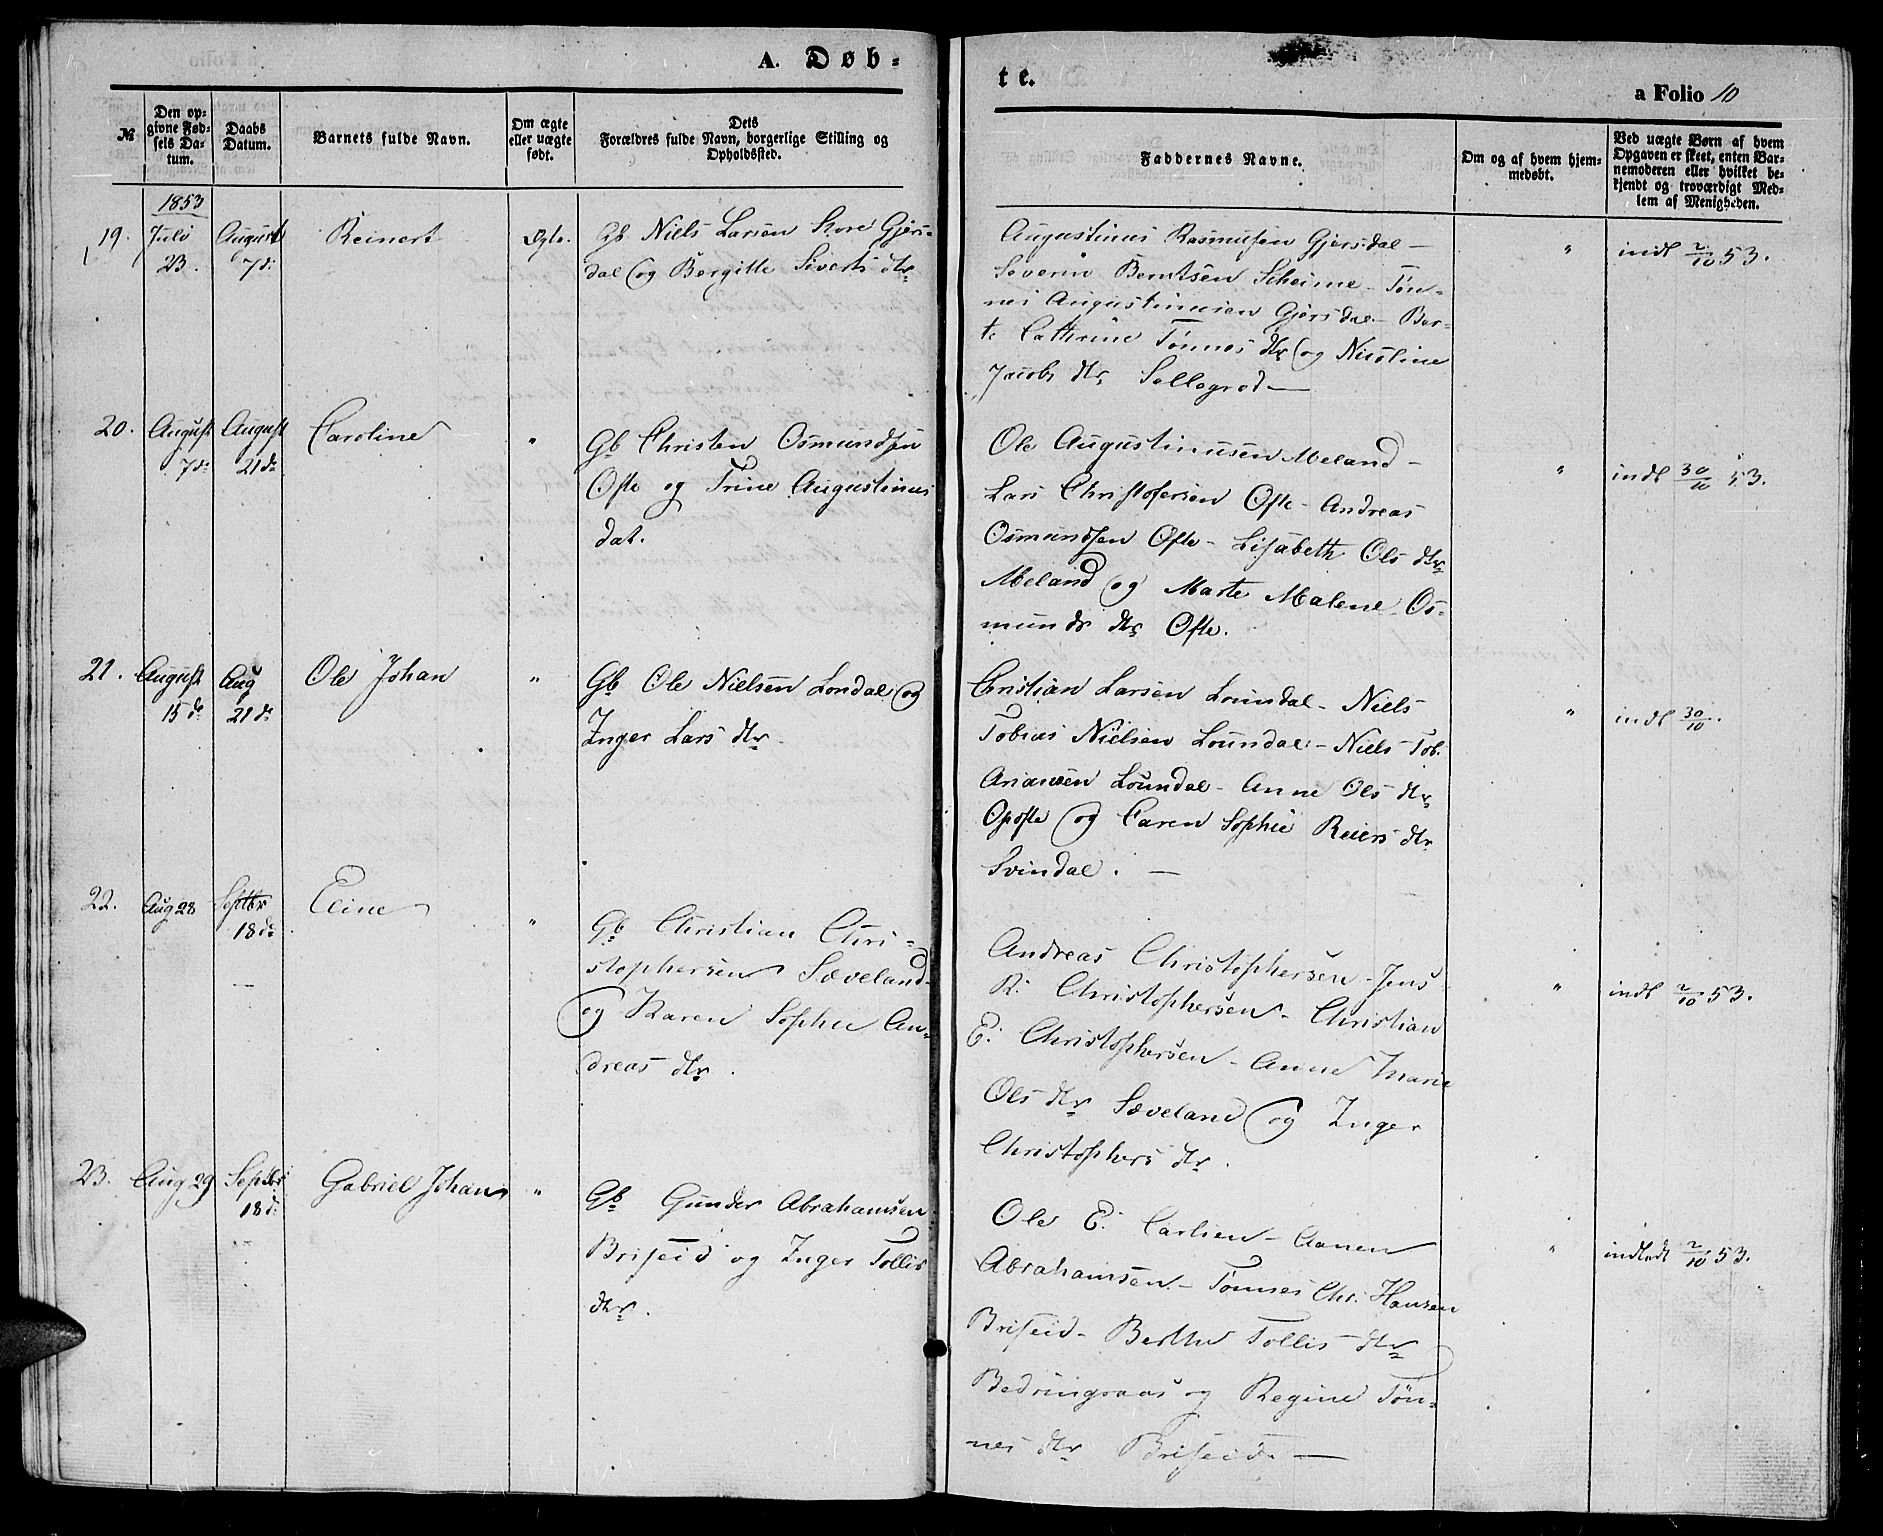 A. Døb-
te.
a Folio 10
№
Den opgivne Fødsels Datum.
Daabs Datum.
Barnets fulde Navn.
Om ægte eller uægte født.
Dets Forældres fulde Navn, borgerlige Stilling og Opholdssted.
Faddernes Navne.
Om og af hvem hjemmedøbt.
Ved uægte Børn af hvem Opgaven er skeet, enten Barnemoderen eller hvilket bekjendt og troværdigt Medlem af Menigheden.
1853
19. Juli 23. August 7de Reinert Ægte.
Gb Niels Larsen Store Gjers-
dal og Bergitte Siverts dtr
Augustinus Rasmusen Gjersdal -
Severin Berntsen Scheime - Tøn-
nes Augustinusen Gjersdal - Ber-
te Cathrine Tønnes dtr og Nicoline
Jacobs dtr Sellegrod -
" indt 2/10 53.
20. August 7de August 21de Caroline "
Gb Christen Osmundsen
Ofte og Trine Augustinus
dat.
Ole Augustinusen Meland -
Lars Christofersen Ofte - Andreas
Osmundsen Ofte - Lisabeth Ols dtr
Meland og Marte Malene Os-
munds dtr Ofte.
" indt 30/10 53.
21. August 15de Aug 21de Ole Johan "
Gb Ole Nielsen Londal og
Inger Lars dtr.
Christian Larsen Loundal - Niels
Tobias Nielsen Loundal - Niels Tob.
Ariansen Loundal - Anne Ols dtr
Opofte og Caren Sophie Reiers dtr
Svindal. -
" indt 30/10.
22. Aug 28 Septbr 18de Eline "
Gb Christian Chri-
stophersen Sæveland
og Karen Sophie An-
dreas dtr.
Andreas Christophersen - Jens
R. Christophersen - Christian
E. Christophersen - Anne Marie
Ols dtr Sæveland og Inger
Christophers dtr.
" indt 2/10 53.
23. Aug 29 Septbr 18de Gabriel Johan "
Gb Gunder Abrahamsen
Briseid og Inger Tollis
dtr.
Ole E. Carlsen - Aanen
Abrahamsen - Tønnes Chr. Hansen
Briseid - Berthe Tollis dtr
Bedringsaas og Regine Tøn-
nes dtr Briseid. -
" indledt 2/10 53.